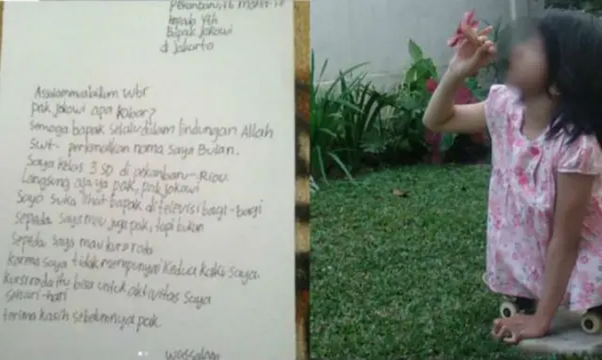 Pekanbaru, 16 Maret
kepada Yth
Bapak Jokowi
di Jakarta
Assalammualaikum Wbr
pak jokowi apa kabar?
semoga bapak selalu dalam lindungan Allah
Swt. perkenalkan nama saya Bulan.
Saya kelas 3 SD di pekanbaru-Riau
Langsung aja ya pak, pak jokowi
Saya suka lihat bapak di televisi bagi-bagi
sepeda saya mau juga pak, tapi bukan
sepeda saya mau kursi roda
karna saya tidak mempunyai kedua kaki saya.
kursi roda itu bisa untuk aktivitas saya
sehari-hari
terima kasih sebelumnya pak
wassalam